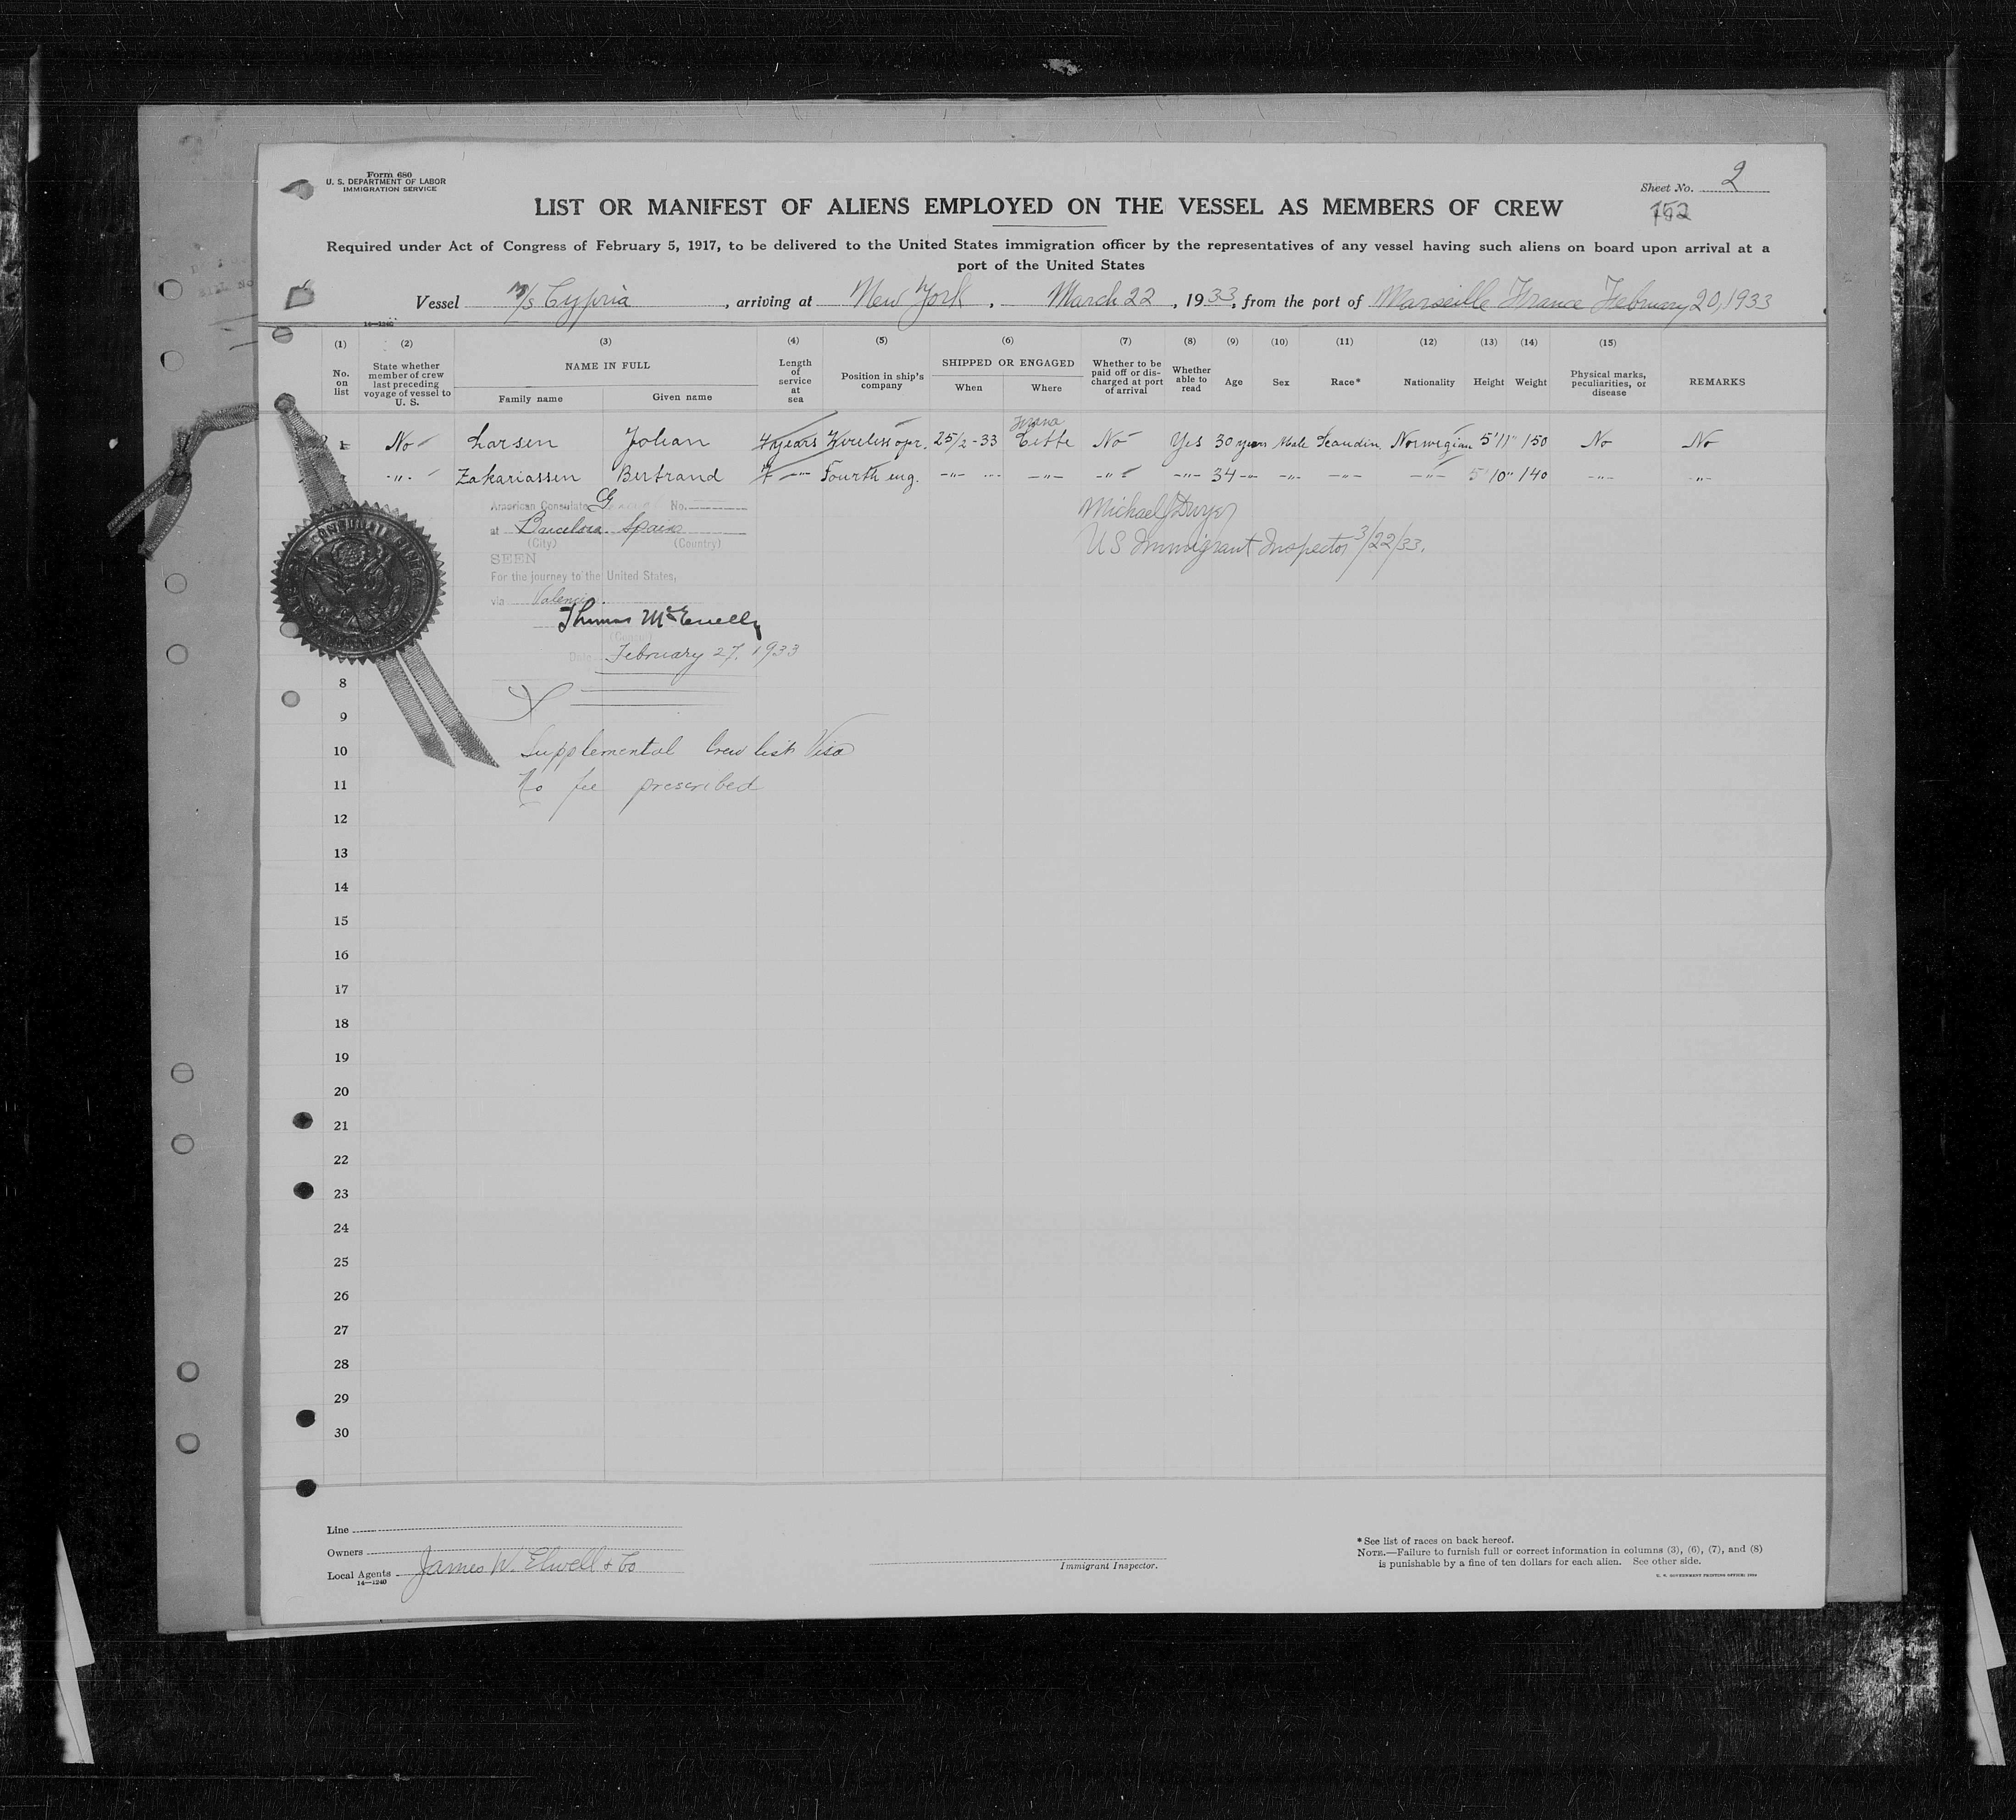 Form 680
U. S. DEPARTMENT OF LABOR
IMMIGRATION SERVICE
Sheet No. 2
152
LIST OR MANIFEST OF ALIENS EMPLOYED ON THE VESSEL AS MEMBERS OF CREW
Required under Act of Congress of February 5, 1917, to be delivered to the United States immigration officer by the representatives of any vessel having such aliens on board upon arrival at a
port of the United States
Vessel M/S Cypria, arriving at New York, March 22, 1933, from the port of Marseille France February 20, 1933
14—1240
(1) (2) (3) (4) (5) (6) (7) (8) (9) (10) (11) (12) (13) (14) (15)
No. on list
State whether member of crew last preceding voyage of vessel to U. S.
NAME IN FULL
Family name
Given name
Length of service at sea
Position in ship's company
SHIPPED OR ENGAGED
When
Where
Whether to be paid off or discharged at port of arrival
Whether able to read
Age
Sex
Race*
Nationality
Height
Weight
Physical marks, peculiarities, or disease
REMARKS
1 No Larsen Johan 4 years Wireless opr. 25/2-33 Cette No Yes 30 years Male Scandin. Norwegian 5'11" 150 No No
-"- Zakariassen Bertrand 7 -"- Fourth eng. -"- -"- -"- -"- -"- 34 -"- -"- -"- -"- 5'10" 140 -"- -"-
American Consulate G No.
at Barcelona Spain
(City) (Country)
SEEN
For the journey to the United States,
via Valencia.
Thomas McEnelly
(Consul)
Date February 27, 1933
Michael J Dwyer
US Immigrant Inspector 3/22/33.
Supplemental Crew list Visa
No fee prescribed
8
9
10
11
12
13
14
15
16
17
18
19
20
21
22
23
24
25
26
27
28
29
30
Line
Owners
Local Agents James W. Elwell & Co
14—1240
Immigrant Inspector.
* See list of races on back hereof.
NOTE.—Failure to furnish full or correct information in columns (3), (6), (7), and (8)
is punishable by a fine of ten dollars for each alien. See other side.